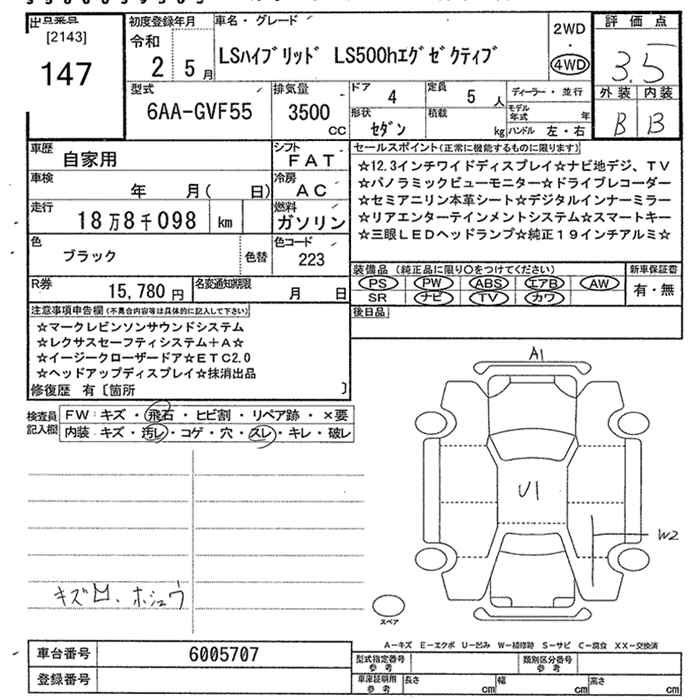 出品業店
[2143]
147
初度登録年月
令和
2 5月
車名・グレード
LSハイブリッド LS500hエグゼクティブ
2WD
・
4WD
評価点
3.5
外装 内装
B B
型式
6AA-GVF55
排気量
3500
cc
ドア
4
定員
5人
形状
セダン
積載
kg
ディーラー・並行
モデル
年式
年
ハンドル 左・右
車歴
自家用
シフト
FAT
車検
年 月( 日)
冷房
AC
走行
18万8千098 km
燃料
ガソリン
色
ブラック
色替
色コード
223
R券
15,780円
名変通知期限
月 日
セールスポイント(正常に機能するものに限ります)
☆12.3インチワイドディスプレイ☆ナビ地デジ、TV
☆パノラミックビューモニター☆ドライブレコーダー
☆セミアニリン本革シート☆デジタルインナーミラー
☆リアエンターテインメントシステム☆スマートキー
☆三眼LEDヘッドランプ☆純正19インチアルミ☆
装備品(純正品に限り○をつけてください)
PS PW ABS エアB AW
SR ナビ TV カワ
新車保証書
有・無
後日品
注意事項申告欄(不具合内容等は具体的に記入して下さい)
☆マークレビンソンサウンドシステム
☆レクサスセーフティシステム+A☆
☆イージークローザードア☆ETC2.0
☆ヘッドアップディスプレイ☆抹消出品
修復歴 有〔箇所 〕
検査員
記入欄
FW:キズ・飛石・ヒビ割・リペア跡・×要
内装:キズ・汚レ・コゲ・穴・スレ・キレ・破レ
キズ凹、ホシュウ
A1
U1
W2
スペア
A―キズ E―エクボ U―凹み W―補修跡 S―サビ C―腐食 XX―交換済
車台番号
6005707
登録番号
型式指定番号
参考
類別区分番号
参考
車庫証明用
参考
長さ cm
幅 cm
高さ cm